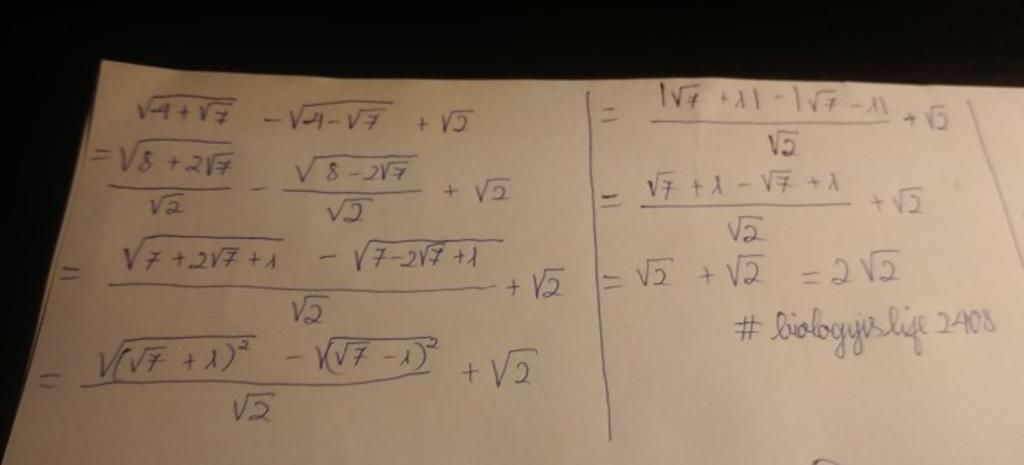 √4+√7 - √4-√7 + √2
= √8+2√7 / √2 - √8-2√7 / √2 + √2
= √7+2√7+1 - √7-2√7+1 / √2 + √2
= √(√7+1)² - √(√7-1)² / √2 + √2
= |√7+1| - |√7-1| / √2 + √2
= √7+1-√7+1 / √2 + √2
= √2 + √2 = 2√2
# biologyislife2408